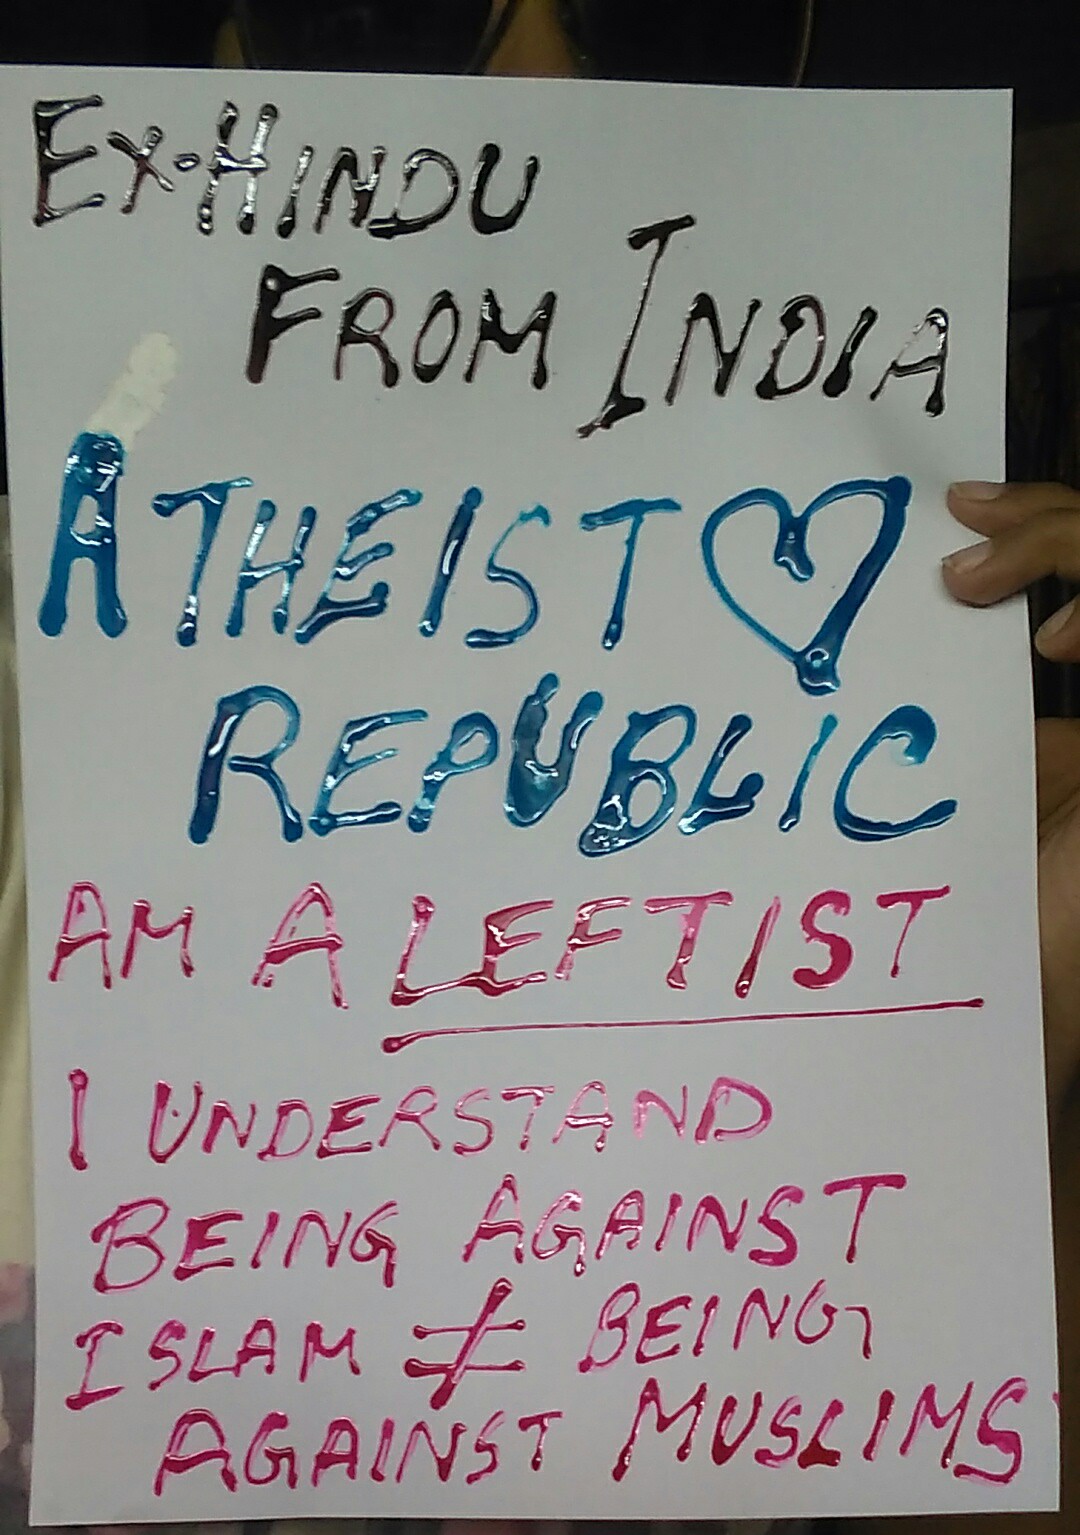 EX-HINDU
FROM INDIA
ATHEIST ♡
REPUBLIC
AM A LEFTIST
I UNDERSTAND
BEING AGAINST
ISLAM ≠ BEING
AGAINST MUSLIMS